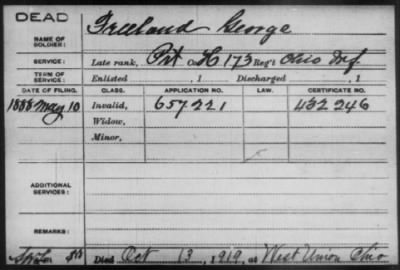 DEAD
NAME OF SOLDIER: Freeland George
SERVICE: Late rank, Pvt Co. H 173 Reg't Ohio Inf
TERM OF SERVICE: Enlisted , 1 Discharged , 1
DATE OF FILING. CLASS. APPLICATION NO. LAW. CERTIFICATE NO.
1888 May 10 Invalid, 657221 432246
Widow,
Minor,
ADDITIONAL SERVICES:
REMARKS:
Died Oct 13, 1919, at West Union Ohio